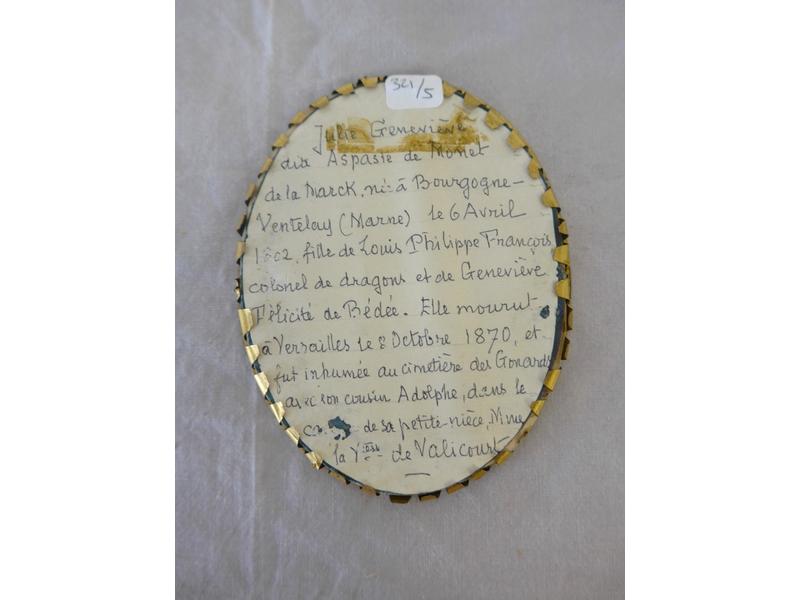 321/5
Julie Geneviève
dite Aspasie de Monet
de la Marck, née à Bourgogne-
Ventelay (Marne) le 6 Avril
1802, fille de Louis Philippe François
colonel de dragons et de Geneviève
Félicité de Bédée. Elle mourut
à Versailles le 8 Octobre 1870, et
fut inhumée au cimetière des Gonards
avec son cousin Adolphe, dans le
de sa petite-nièce, Mme
la Vtesse de Valicourt